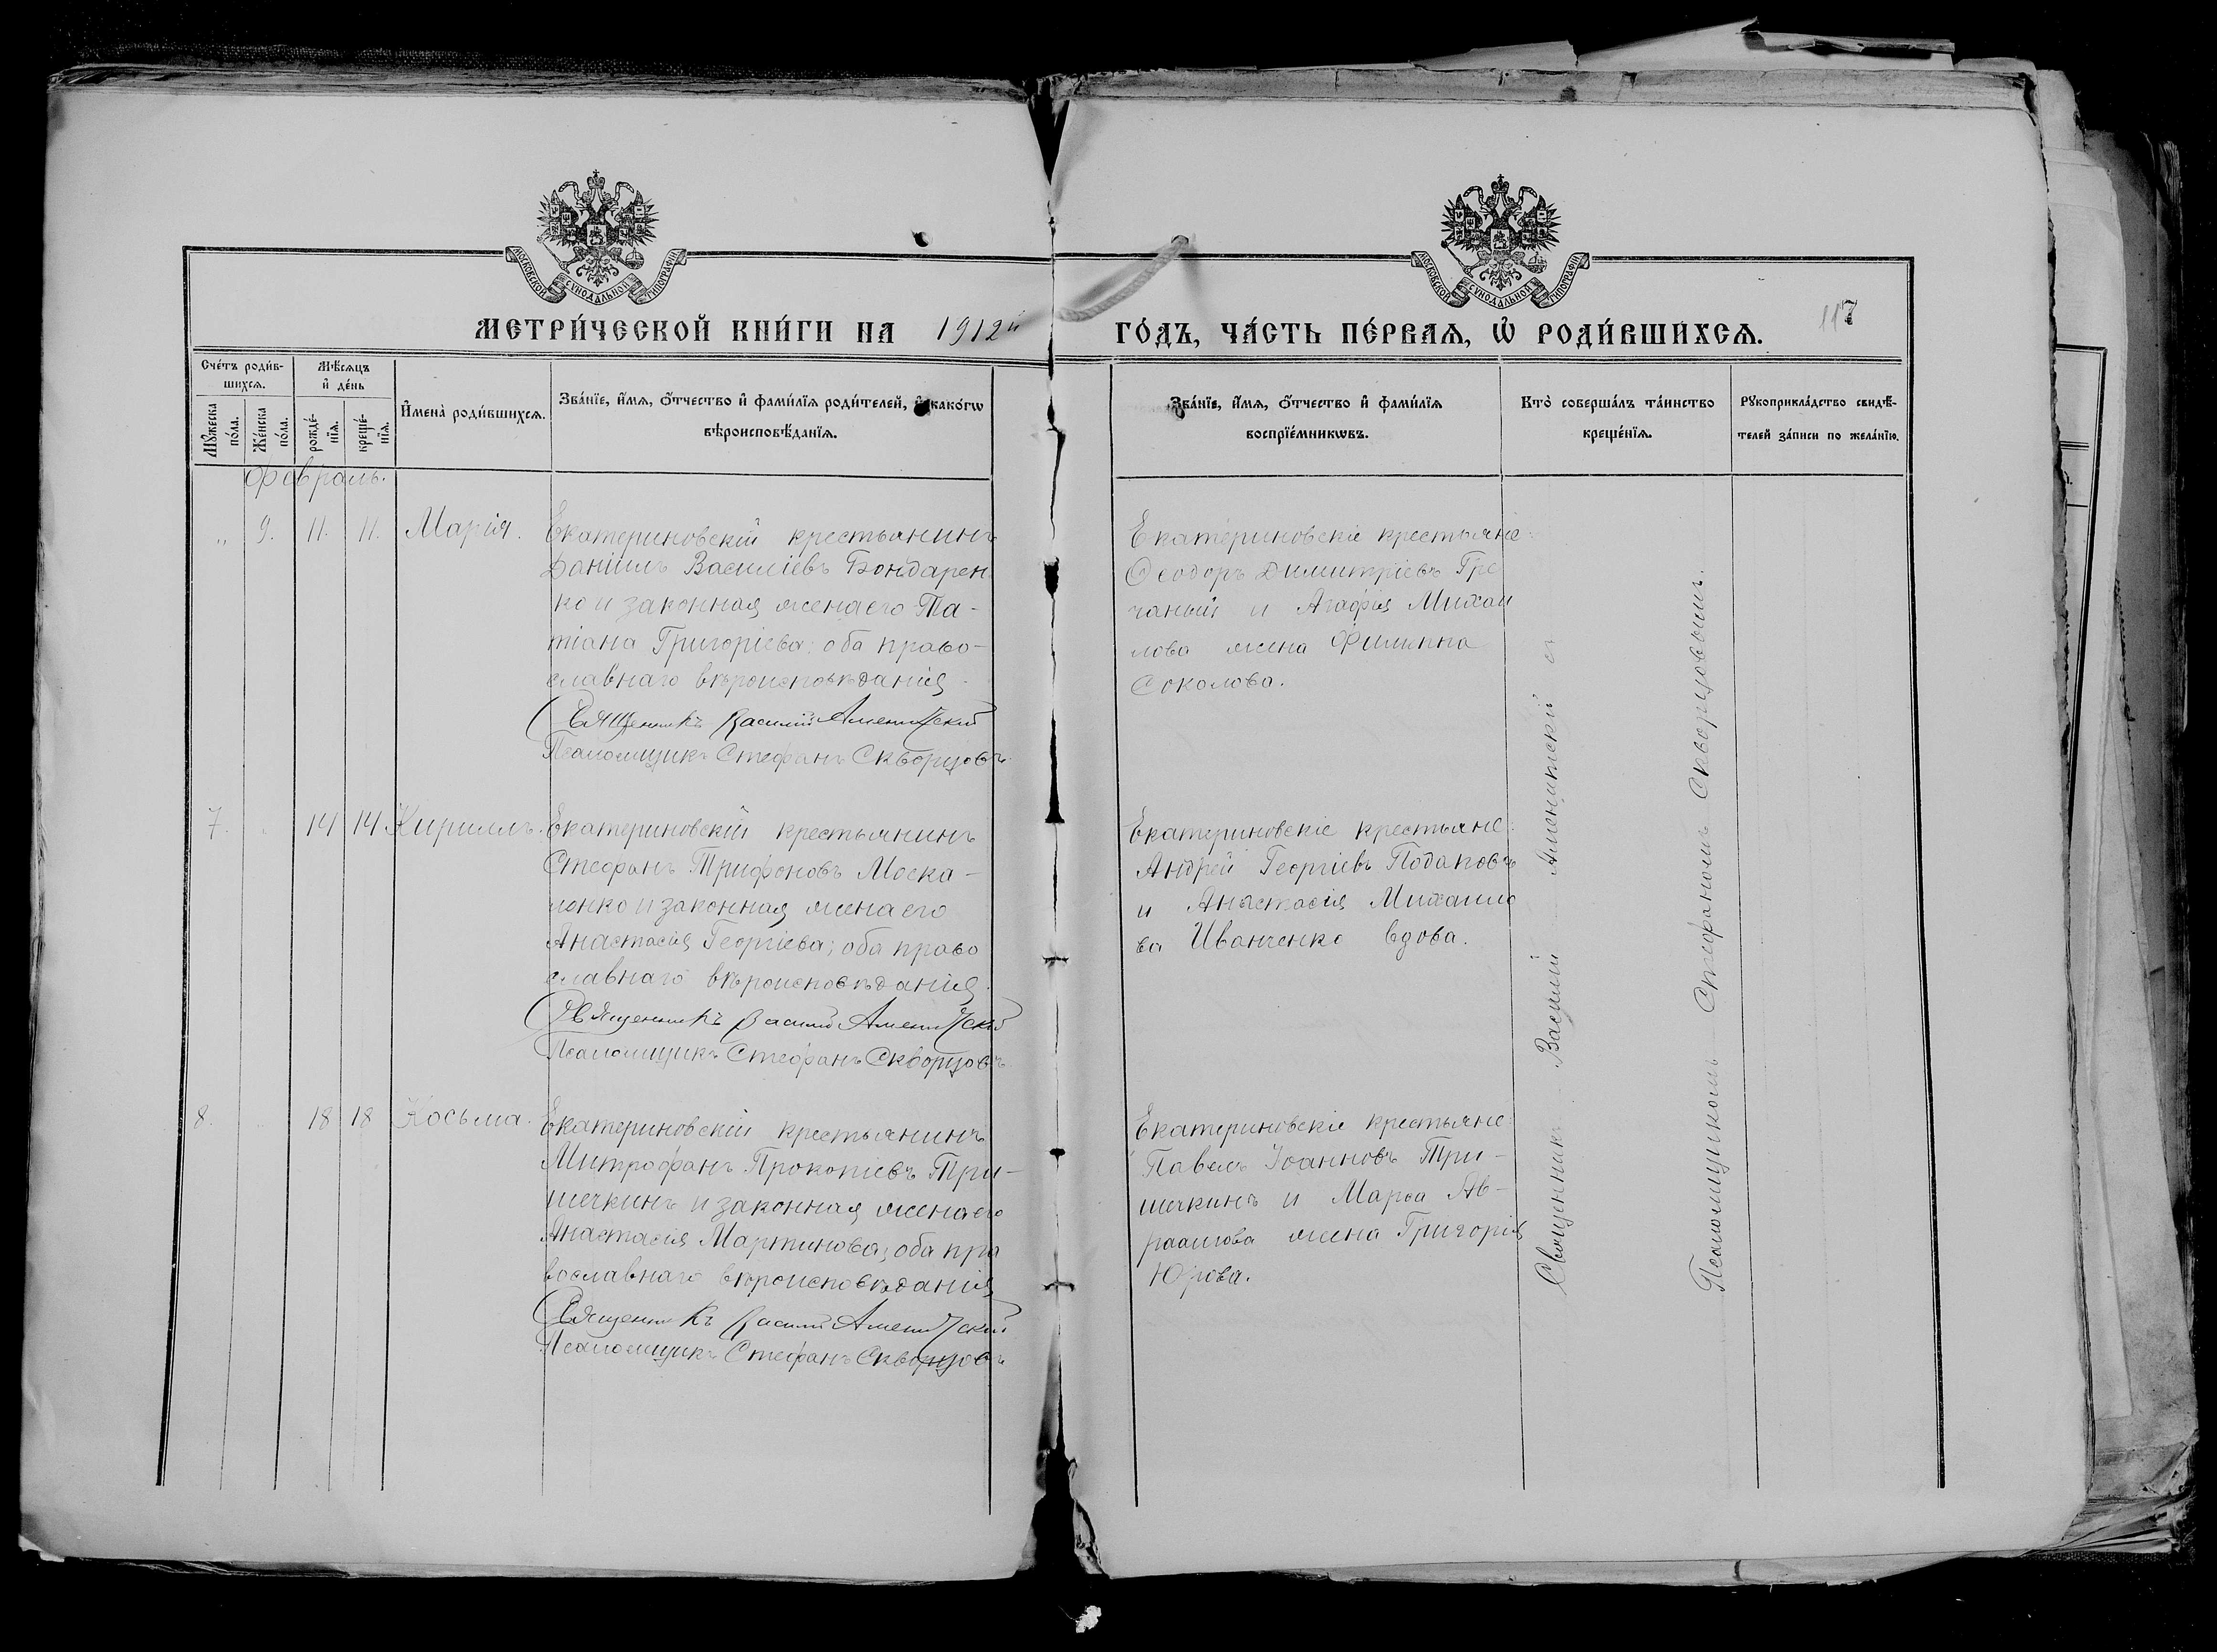 МОСКОВСКОЙ СУНОДАЛЬНОЙ ТИПОГРАФІИ
МОСКОВСКОЙ СУНОДАЛЬНОЙ ТИПОГРАФІИ
117
МЕТРИ́ЧЕСКОЙ КНИ́ГИ НА 1912й ГО́ДЪ, ЧА́СТЬ ПЕ́РВАѦ, Ѡ҆ РОДИ́ВШИХСѦ.
Сче́тъ роди́в-
шихсѧ.
Мꙋ́жеска по́ла.
Же́нска по́ла.
Мѣ́сѧцъ
и҆ де́нь
рожде́-
нїѧ.
креще́-
нїѧ.
И҆мена̀ роди́вшихсѧ.
Зва́нїе, и҆́мѧ, ѻ҆́тчество и҆ фами́лїѧ роди́телей, и҆ како́гѡ
вѣроисповѣ́данїѧ.
Зва́нїе, и҆́мѧ, ѻ҆́тчество и҆ фами́лїѧ
воспрїе́мникѡвъ.
Кто̀ соверша́лъ та́инство
креще́нїѧ.
Рꙋкоприкла́дство свидѣ́-
телей за́писи по жела́нїю.
Февраль.
„ 9. 11. 11. Марія.
Екатериновскій крестьянинъ
Даніилъ Василіевъ Бондарен
ко и законная жена его Та-
тіана Григоріева; оба право-
славнаго вѣроисповѣданія.
Священникъ Василій Аменитскій
Псаломщикъ Стефанъ Скворцовъ
Екатериновскіе крестьяне:
Ѳеодоръ Димитріевъ Гре
чаный и Агафія Михаи
лова жена Филиппа
Соколова.
7. 14 14 Кириллъ.
Екатериновскій крестьянинъ
Стефанъ Трифоновъ Моска-
ленко и законная жена его
Анастасія Георгіева; оба право
славнаго вѣроисповѣданія.
Священникъ Василій Аменитскій
Псаломщикъ Стефанъ Скворцовъ
Екатериновскіе крестьяне:
Андрей Георгіевъ Подаповъ
и Анастасія Михаило
ва Иванченко вдова.
8. 18 18 Косьма.
Екатериновскій крестьянинъ
Митрофанъ Прокопіевъ Три-
шечкинъ и законная жена его
Анастасія Мартинова; оба пра
вославнаго вѣроисповѣданія
Священникъ Василій Аменитскій
Псаломщикъ Стефанъ Скворцовъ
Екатериновскіе крестьяне:
Павелъ Іоанновъ Три-
шечкинъ и Марѳа Ав-
раамова жена Григорія
Юрова.
Священникъ Василій Аменитскій съ
Псаломщикомъ Стефаномъ Скворцовымъ.